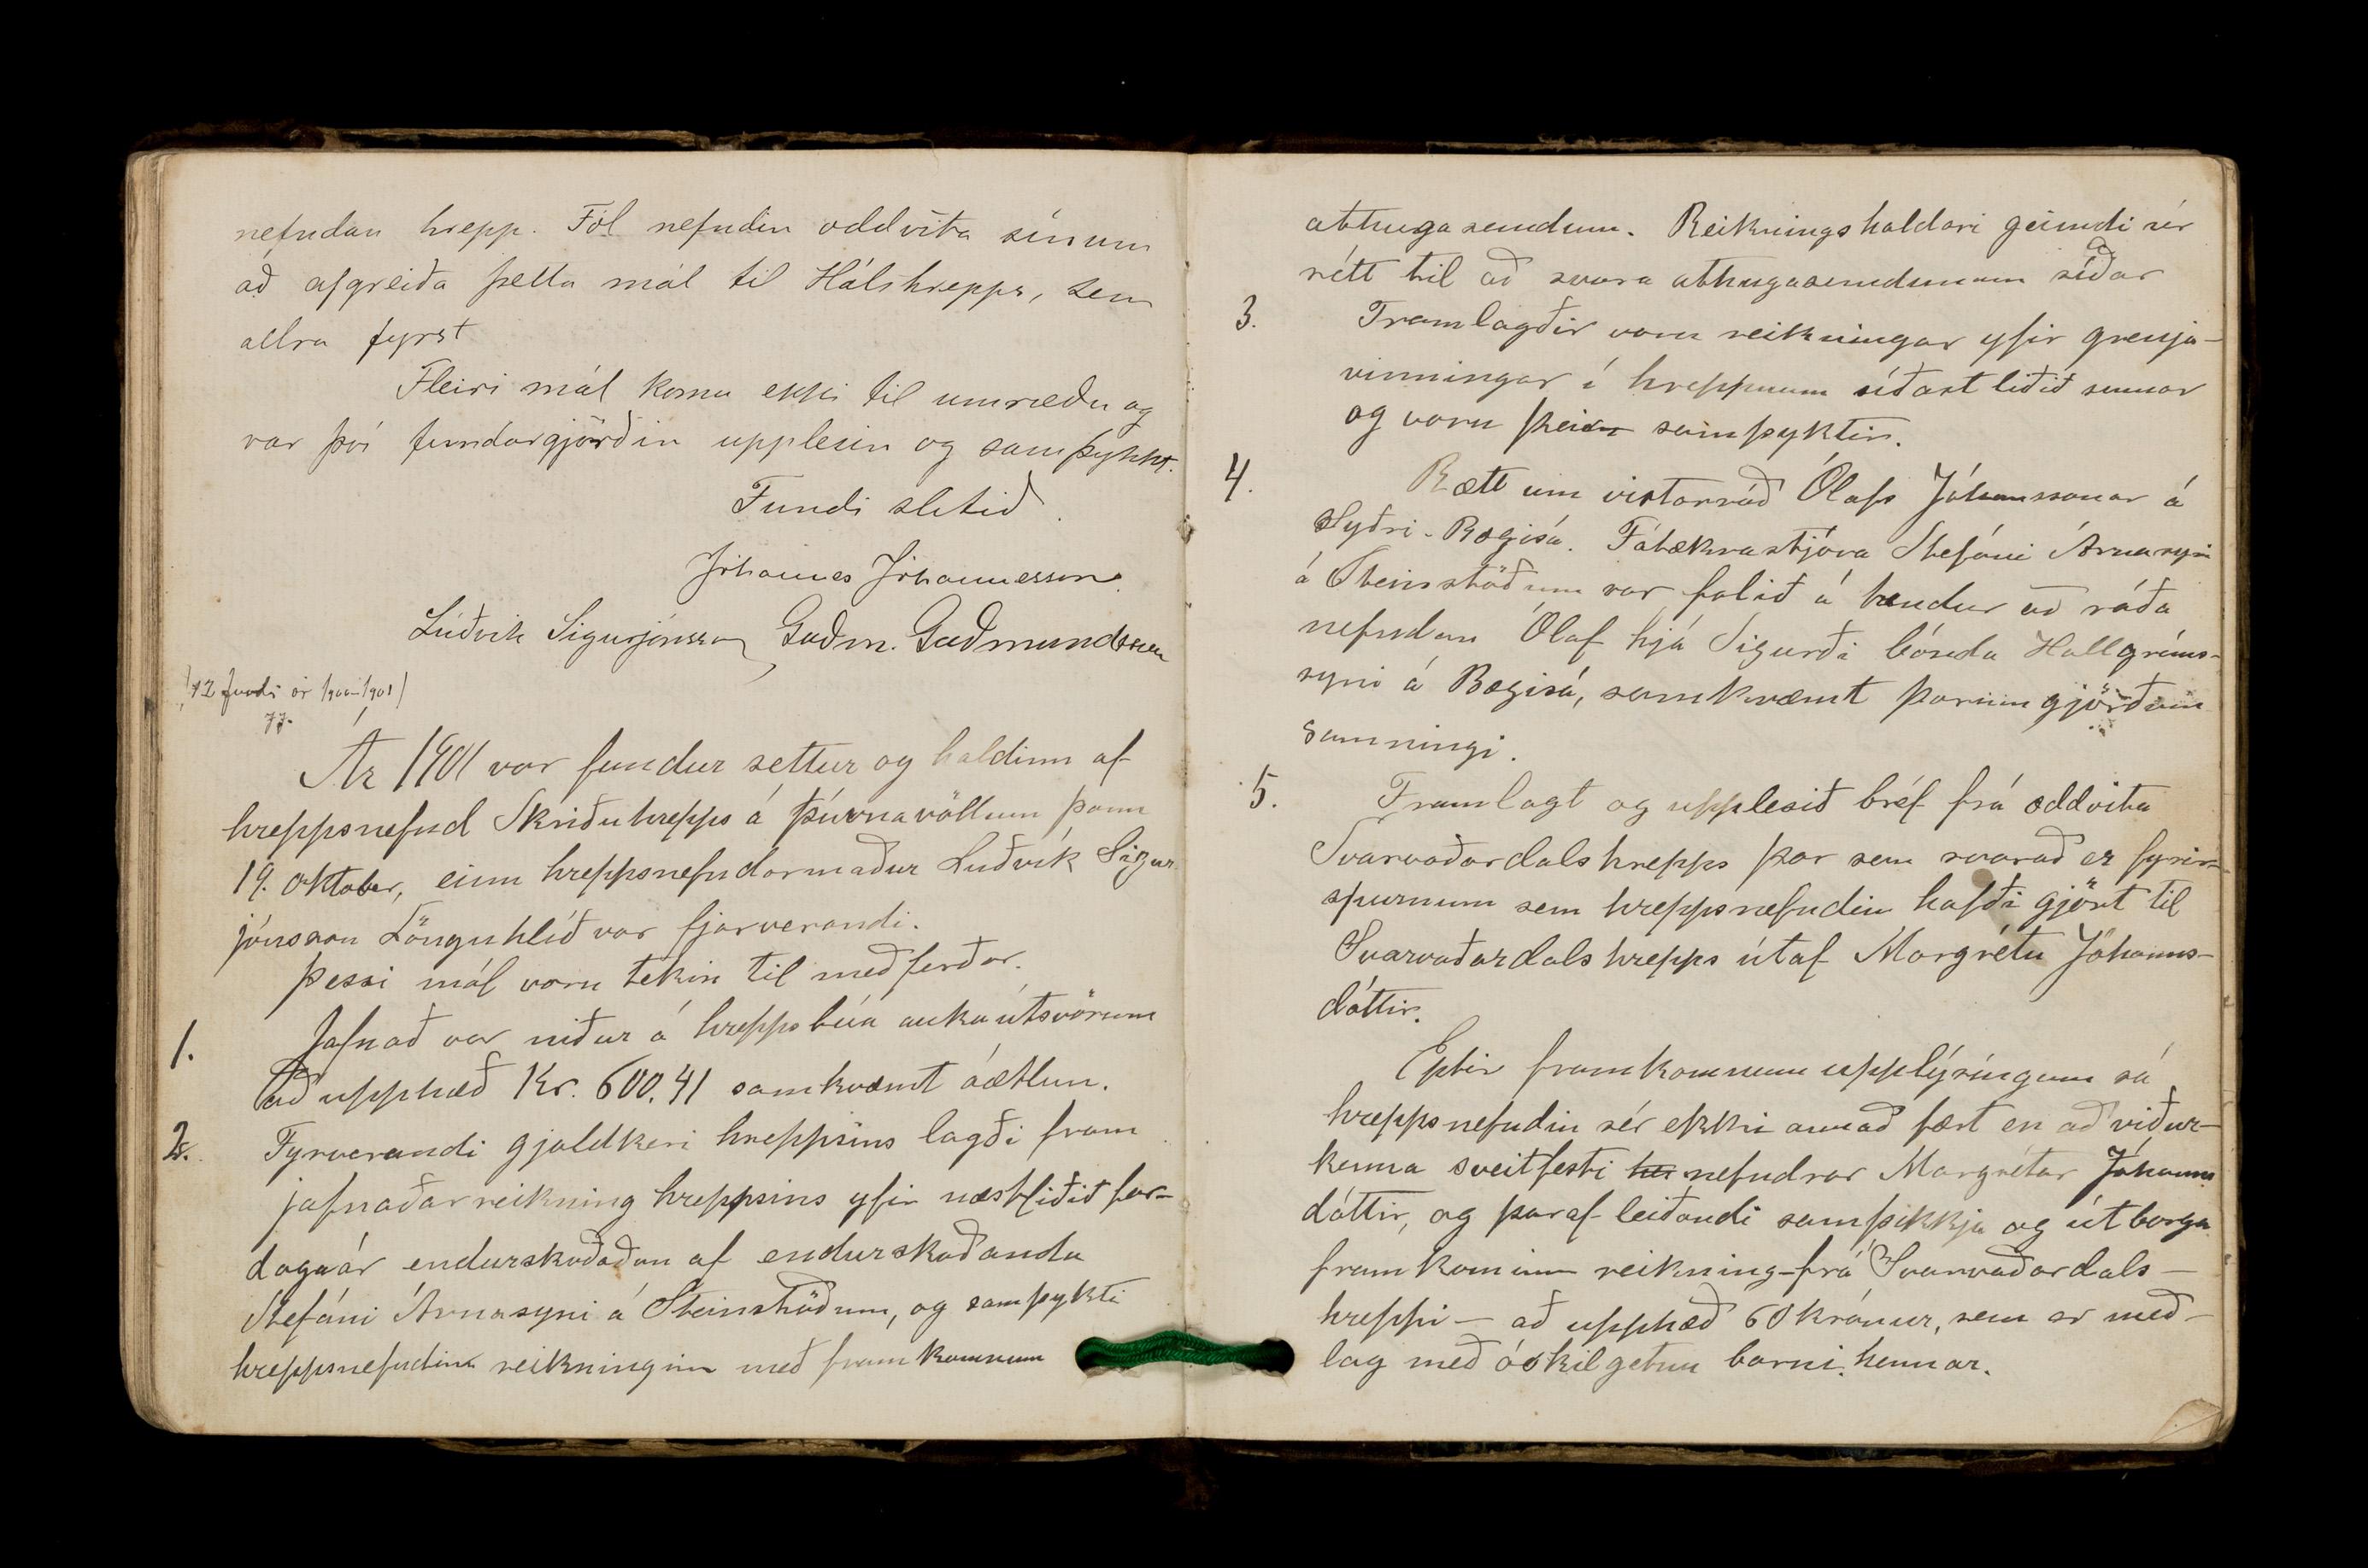 nefndan hrepp. Fól nefndin oddvita sínum
að afgreiða þetta mál til Hálshrepps, sem
allra fyrst
Fleiri mál komu ekki til umræðu og
var því fundargjörðin upplesin og samþykkt.
Fundi slitið.
Jóhannes Jóhannesson.
Lúðvík Sigurjónsson Guðm. Guðmundsson
12 fundi ár 1900-1901
77.
Ár 1901 var fundur settur og haldinn af
hreppsnefnd Skriðuhrepps á Þúfnavöllum þann
19. oktober, einn hreppsnefndarmaður Luðvík Sigur-
jónsson Lönguhlíð var fjarverandi.
Þessi mál voru tekin til meðferðar.
1. Jafnað var niður á hreppsbúa aukaútsvörum
að upphæð Kr. 600.41 samkvæmt áætlun.
2. Fyrverandi gjaldkeri hreppsins lagði fram
jafnaðarreikning hreppsins yfir næstliðið far-
dagaár endurskoðaðan af endurskoðanda
Stefáni Árnasyni á Steinstöðum, og samþykti
hreppsnefndin reikninginn með framkomnum
athugasemdum. Reikningshaldari geimdi sér
rétt til að svara athugasemdunum síðar
3. Framlagðir voru reikningar yfir grenja-
vinningar í hreppnum síðast liðið sumar
og voru þeir samþyktir.
4. Rætt um vistarráð Ólafs Jóhannssonar á
Syðri-Bægisá. Fátækrastjóra Stefáni Árnasyni
á Steinstöðum var falið á hendur að ráða
nefndan Ólaf hjá Sigurði bónda Hallgríms-
syni á Bægisá, samkvæmt þarum gjörðum
samningi.
5. Framlagt og upplesið bréf frá oddvita
Svarvaðardalshrepps þar sem svarað er fyrir-
spurnum sem hreppsnefndin hafði gjört til
Svarvaðardalshrepps útaf Margrétu Jóhanns-
dóttir.
Eptir framkomnum upplýsingum sá
hreppsnefndin sér ekki annað fært en að viður-
kenna sveitfesti her nefndrar Margrétar Jóhanns
dóttir, og þaraf leiðandi samþikkja og útborga
framkominn reikning frá Svarvaðardals-
hreppi – að upphæð 60 krónur, sem er með-
lag með óskilgetnu barni hennar.